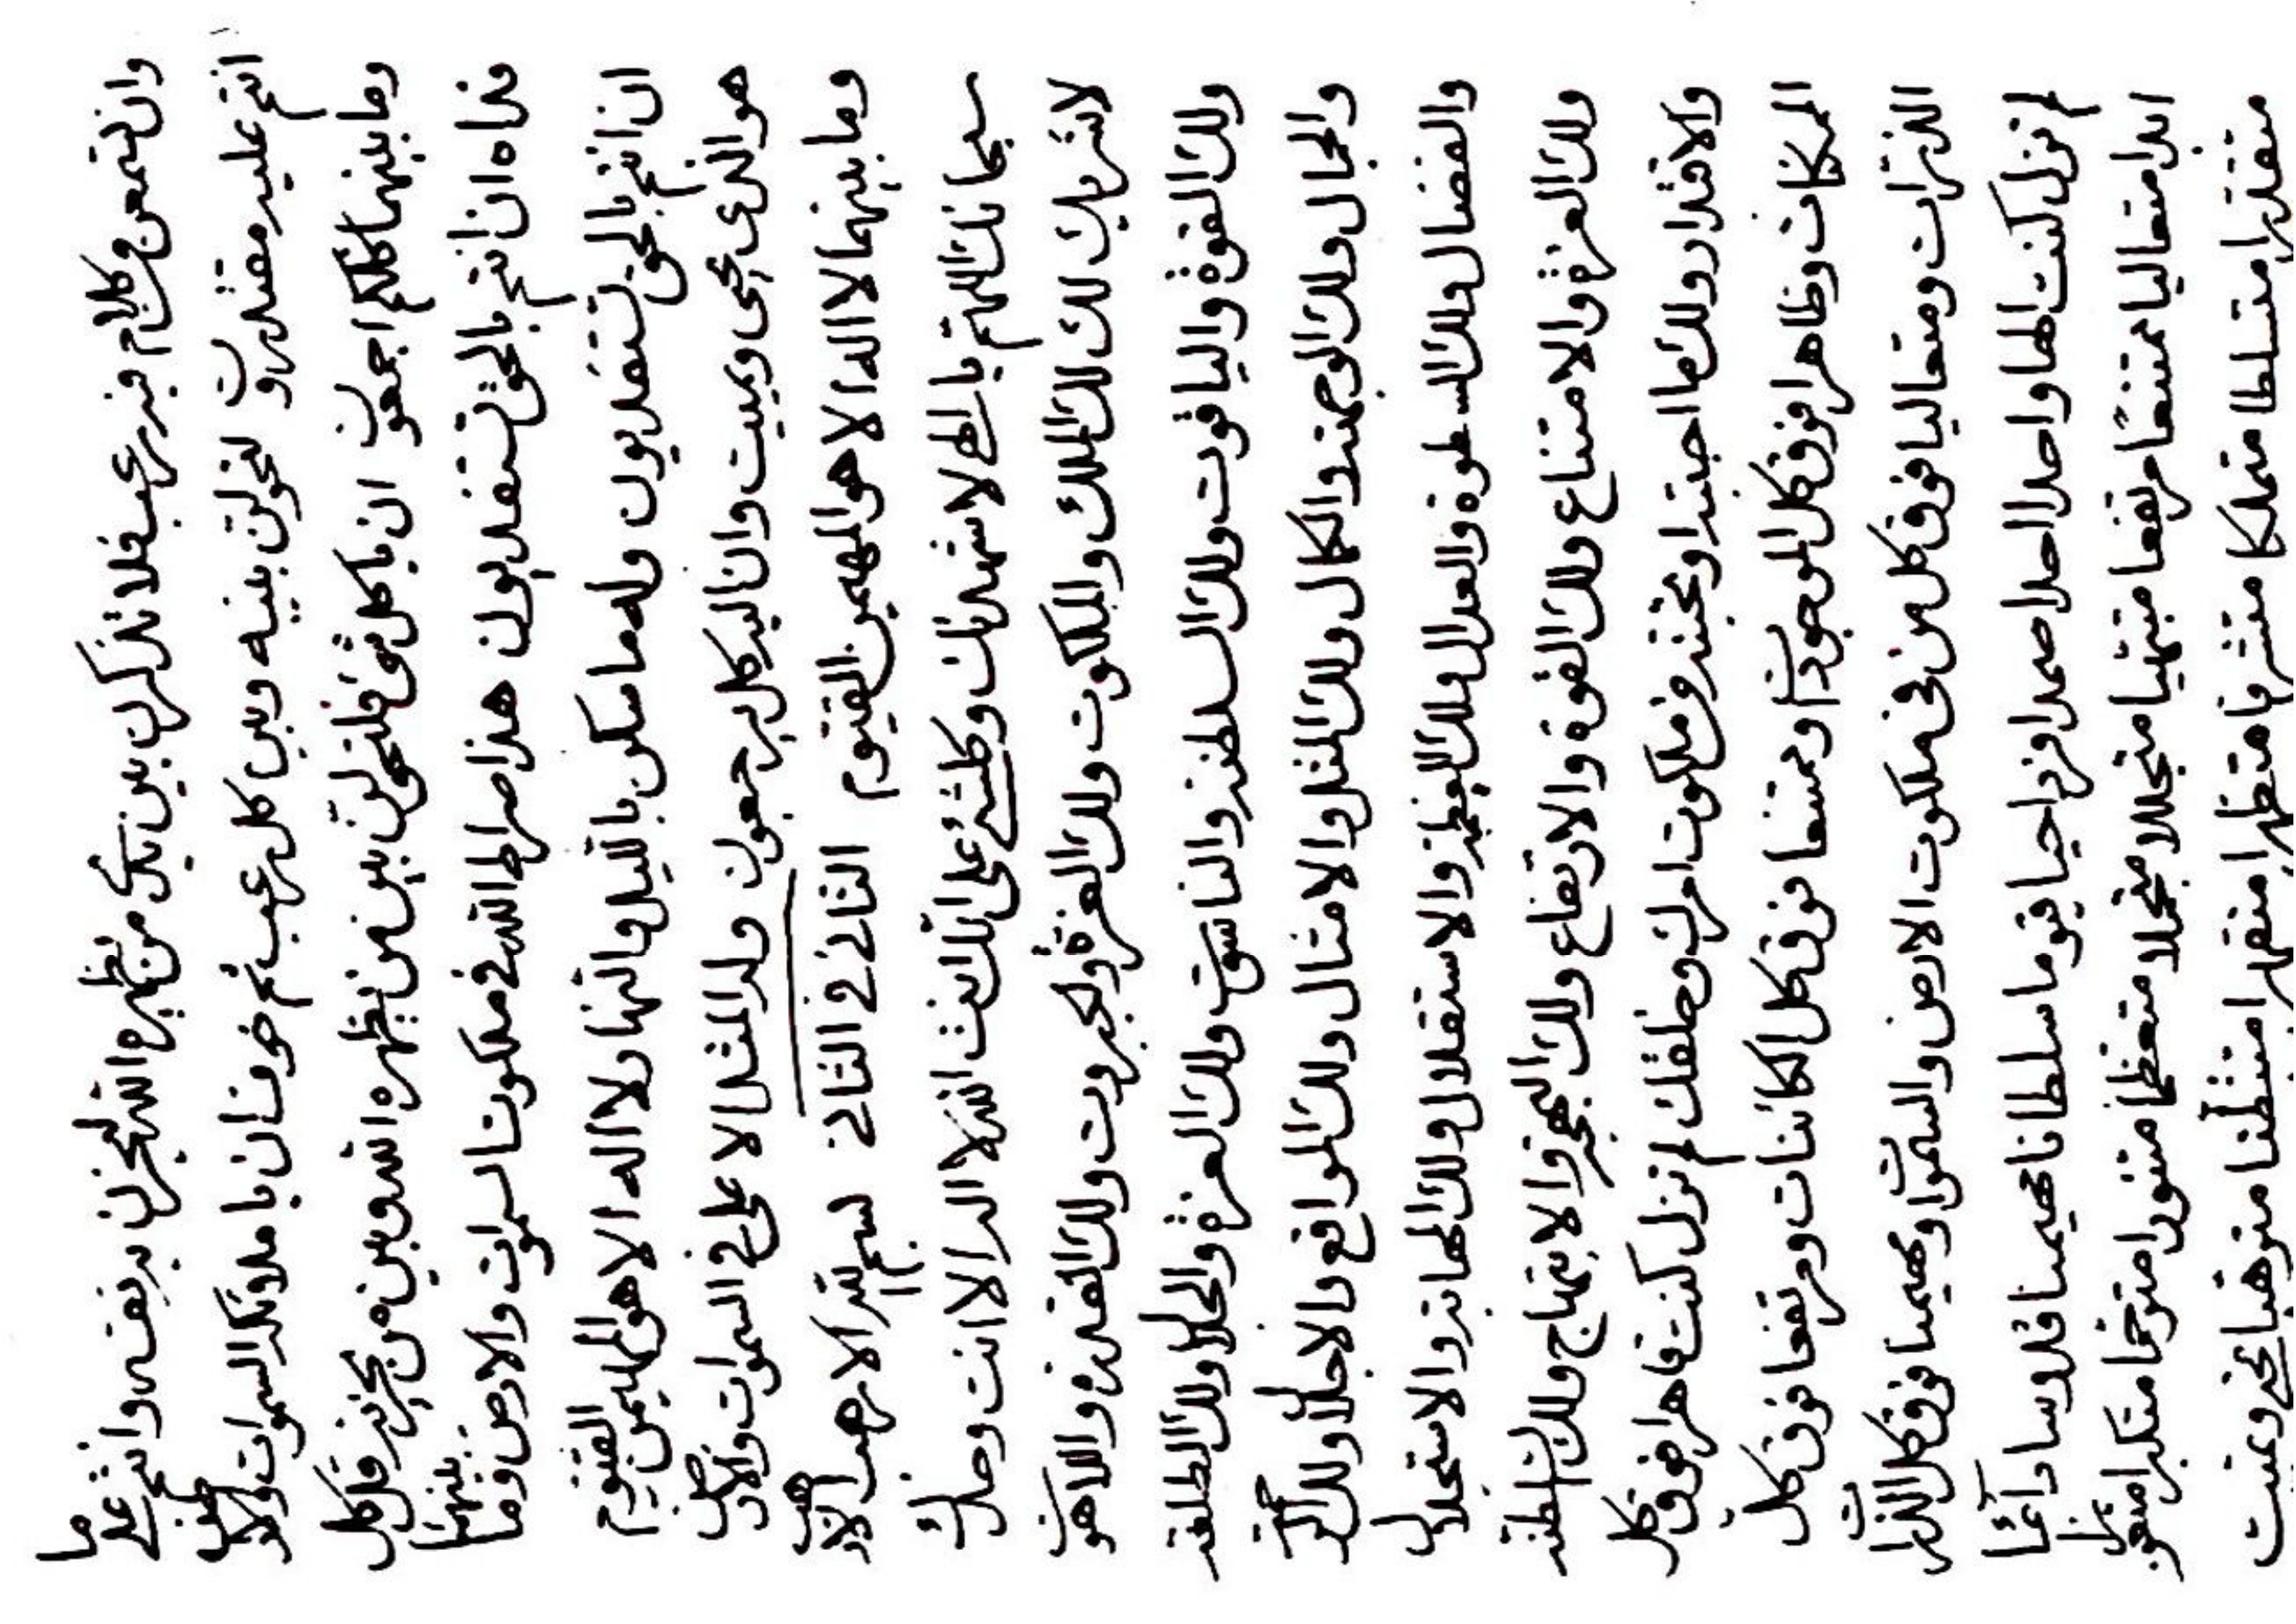 وان لتمعن وكلام فيه رعب فلا تذكرن بين يدي من يظهره الله لتحزنن به نفسه وانتم على ما
انتم عليه مقتدرون لتحولن بينه وبين كل رعب ثم خوف ان يا ملائكة السموات والارض
وما بينهما كلكم اجمعون ان يا كل شئ فلتحولن بين من يظهره الله وبين من يحزنه قل كل
فداه ان انتم بالحق تستفديون هذا صراط الله في ملكوت السموات والارض وما بينهما
ان انتم بالحق لتستفديون وله ما سكن بالليل والنهار لا اله الا هو المهيمن القيوم
هو الذي يحيى ويميت وان اليه كل ليرجعون وله المثل الاعلى في السموات والارض
وما بينهما لا اله الا هو المهيمن القيوم الثاني في الثاني بسم الله الارهب الارهب
سبحانك اللهم يا الهي لاشهدنك وكلشئ على انك انت الله لا اله الا انت وحدك
لا شريك لك لك الملك والملكوت ولك العزة والجبروت ولك القدرة واللاهوت
ولك القوة والياقوت ولك السلطنة والناسوت ولك العزة والجلال ولك الطلعة
والجمال ولك الوجهة والكمال ولك المثل والامثال ولك المواقع والاجلال ولك
والفضال ولك السطوة والعدال ولك العظمة والاستقلال ولك المهابة والاستجلال
ولك العزة والامتناع ولك القوة والارتفاع ولك البهجة والابتهاج ولك السلطنة
والاقتدار ولك ما احببته او تحبنه من ملكوت امرك وخلقك لم تزل كنت قاهرا فوق كل
الممكنات وظاهرا فوق كل الموجودات وممتنعا فوق كل الكائنات ومرتفعا فوق كل
الذرات ومتعاليا فوق كل من في ملكوت الارض والسموات ومهيمنا فوق كل الذرات
لم تزل كنت الها واحدا احدا صمدا فردا حيا قيوما سلطانا مهيمنا قدوسا دائما
ابدا متعاليا ممتنعا مرتفعا مبتهيا متجللا متجملا متعظما متنورا مترحما متكبرا
مقتدرا متسلطا متملكا متشرفا متظهرا متقهرا متبطنا مترهبا تحيي وتميت